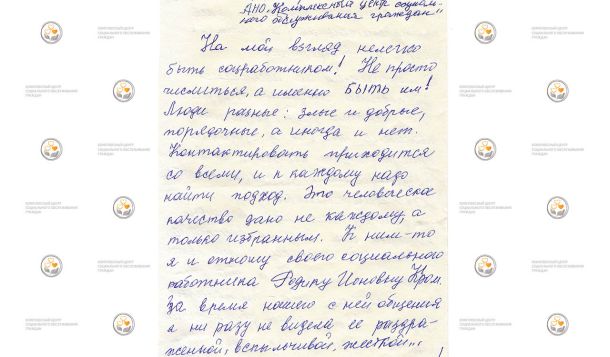 АНО „Комплексный центр социаль-
ного обслуживания граждан"
На мой взгляд нелегко
быть соцработником! Не просто
числиться, а именно БЫТЬ им!
Люди разные: злые и добрые,
порядочные, а иногда и нет.
Контактировать приходится
со всеми, и к каждому надо
найти подход. Это человеческое
качество дано не каждому, а
только избранным. К ним-то
я и отношу своего социального
работника Ионовну Кром.
За время нашего с ней общения
я ни разу не видела ее раздра-
женной, вспыльчивой, жесткой...
КОМПЛЕКСНЫЙ ЦЕНТР
СОЦИАЛЬНОГО ОБСЛУЖИВАНИЯ
ГРАЖДАН